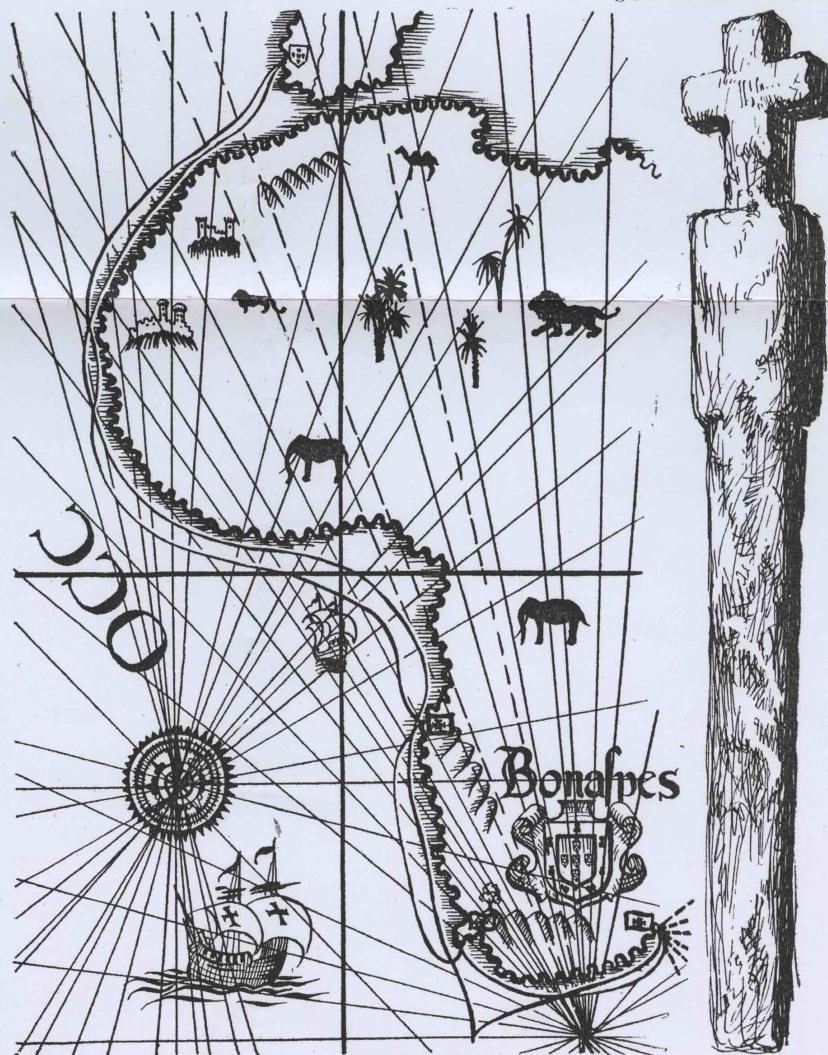 OCC
Bonaſpes